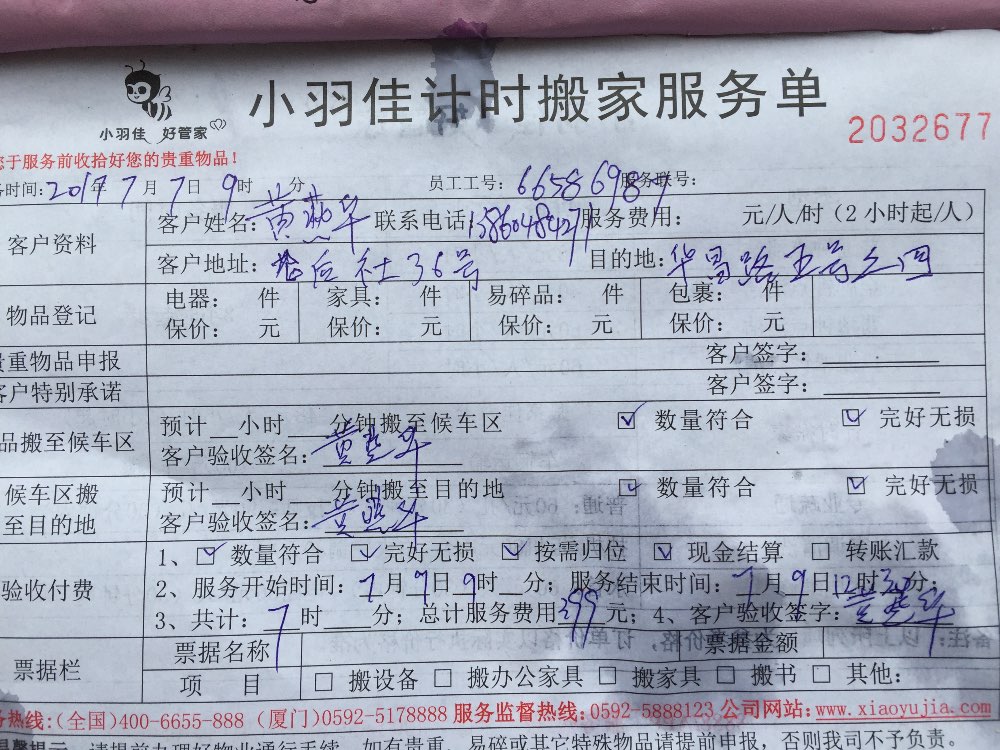 小羽佳计时搬家服务单
小羽佳 好管家
2032677
您于服务前收拾好您的贵重物品！
务时间:2017年7月7日9时 分 员工工号: 6658 6987 服务联号:
客户资料 客户姓名: 黄燕华 联系电话 13860484271 服务费用: 元/人/时（2小时起/人）
客户地址: 塔后社36号 目的地: 华昌路
物品登记 电器: 件 家具: 件 易碎品: 件 包裹: 件
保价: 元 保价: 元 保价: 元 保价: 元
贵重物品申报 客户签字:
客户特别承诺 客户签字:
品搬至候车区 预计 小时 分钟搬至候车区 ☑ 数量符合 ☑ 完好无损
客户验收签名: 黄燕华
候车区搬至目的地 预计 小时 分钟搬至目的地 ☑ 数量符合 ☑ 完好无损
客户验收签名: 黄燕华
验收付费 1、☑ 数量符合 ☑ 完好无损 ☑ 按需归位 ☑ 现金结算 □ 转账汇款
2、服务开始时间: 7月9日9时 分; 服务结束时间: 7月9日12时30分;
3、共计: 7时 分; 总计服务费用399元; 4、客户验收签字: 黄燕华
票据栏 票据名称 票据金额
项 目 □ 搬设备 □ 搬办公家具 □ 搬家具 □ 搬书 □ 其他:
务热线:(全国)400-6655-888 (厦门)0592-5178888 服务监督热线:0592-5888123 公司网站:www.xiaoyujia.com
温馨提示 请提前办理好物业通行手续，如有贵重、易碎或其它特殊物品请提前申报，否则我司不予负责。